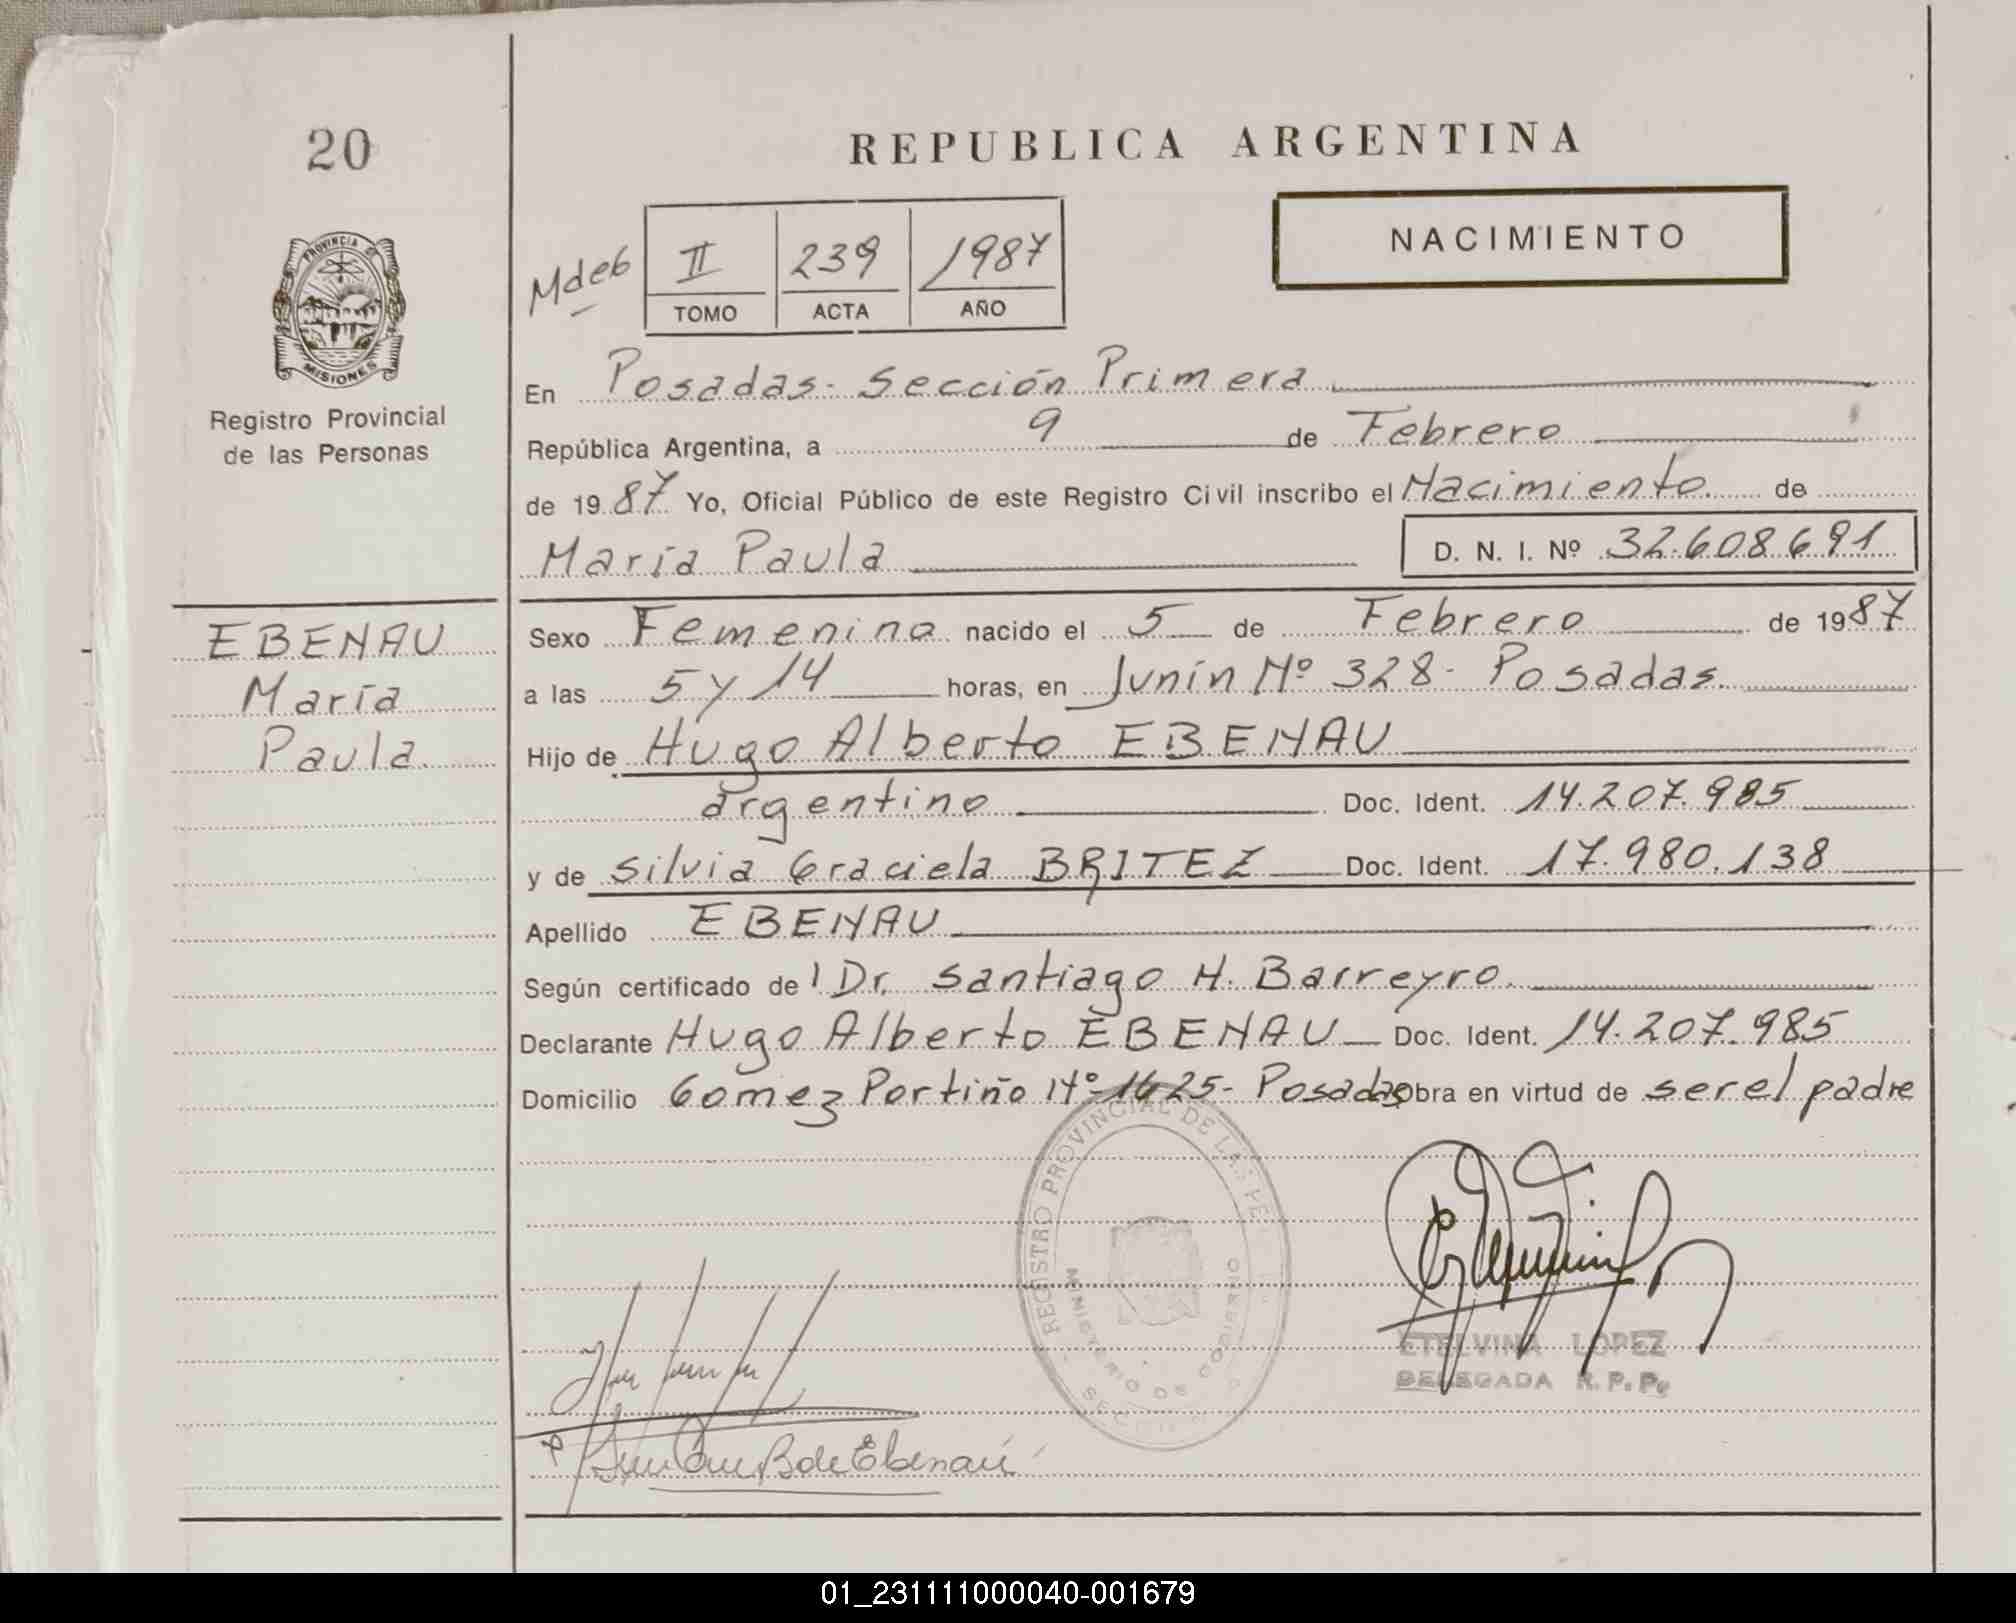 20
REPUBLICA ARGENTINA
NACIMIENTO
Mdeb
II 239 1987
TOMO ACTA AÑO
PROVINCIA DE
MISIONES
Registro Provincial
de las Personas
En Posadas - Sección Primera
República Argentina, a 9 de Febrero
de 1987 Yo, Oficial Público de este Registro Civil inscribo el Nacimiento de
María Paula D. N. I. Nº 32.608.691
EBENAU
María
Paula
Sexo Femenino nacido el 5 de Febrero de 1987
a las 5 y 14 horas, en Junín Nº 328 - Posadas.
Hijo de Hugo Alberto EBENAU
argentino Doc. Ident. 14.207.985
y de Silvia Graciela BRITEZ Doc. Ident. 17.980.138
Apellido EBENAU
Según certificado de l Dr. Santiago H. Barreyro.
Declarante Hugo Alberto EBENAU Doc. Ident. 14.207.985
Domicilio Gomez Portiño Nº 1625 - Posadas Obra en virtud de ser el padre
REGISTRO PROVINCIAL DE LAS
MINISTERIO DE GOBIERNO
ETELVINA LOPEZ
DELEGADA R.P.P.
B de Ebenau
01_231111000040-001679